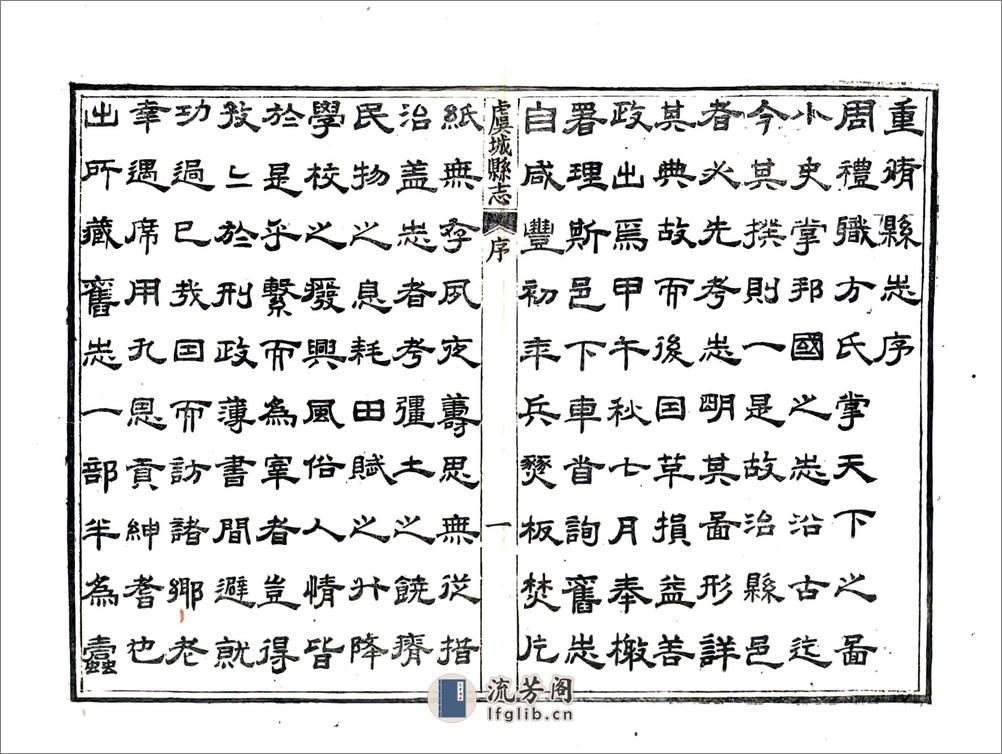 重脩縣志序
周禮職方氏掌天下之圖
小史掌邦國之志沿古迄
今其撰則一是故治縣邑
者必先考志明其圖形詳
其典故而後因革損益善
政出焉甲午秋七月奉檄
署理斯邑下車首詢舊志
自咸豐初年兵燹板焚片
虞城縣志
序
一
紙無存夙夜籌思無從措
治蓋志者考疆土之饒瘠
民物之息耗田賦之升降
學校之廢興風俗人情皆
於是乎繫而為宰者豈得
孜孜於刑政薄書間避就
功過已哉因而訪諸鄉老
幸遇席用孔恩貢紳耆也
出所藏舊志一部半為蠹
流芳阁
lfglib.cn